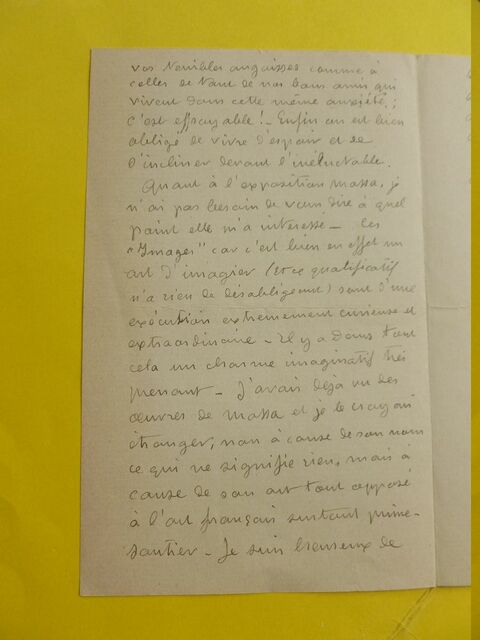 vos terribles angoisses comme à
celles de tant de nos bons amis qui
vivent dans cette même anxiété ;
c'est effroyable ! - Enfin on est bien
obligé de vivre d'espoir et de
s'incliner devant l'inéluctable.
Quant à l'exposition Massa, je
n'ai pas besoin de vous dire à quel
point elle m'a intéressé - Ces
"Images" car c'est bien en effet un
art d'imagier (et ce qualificatif
n'a rien de désobligeant) sont d'une
exécution extrêmement curieuse et
extraordinaire - Il y a dans tout
cela un charme imaginatif très
prenant - J'avais déjà vu des
œuvres de Massa et je le croyais
étranger, non à cause de son nom
ce qui ne signifie rien, mais à
cause de son art tout opposé
à l'art français surtout prime-
sautier - Je suis heureux de